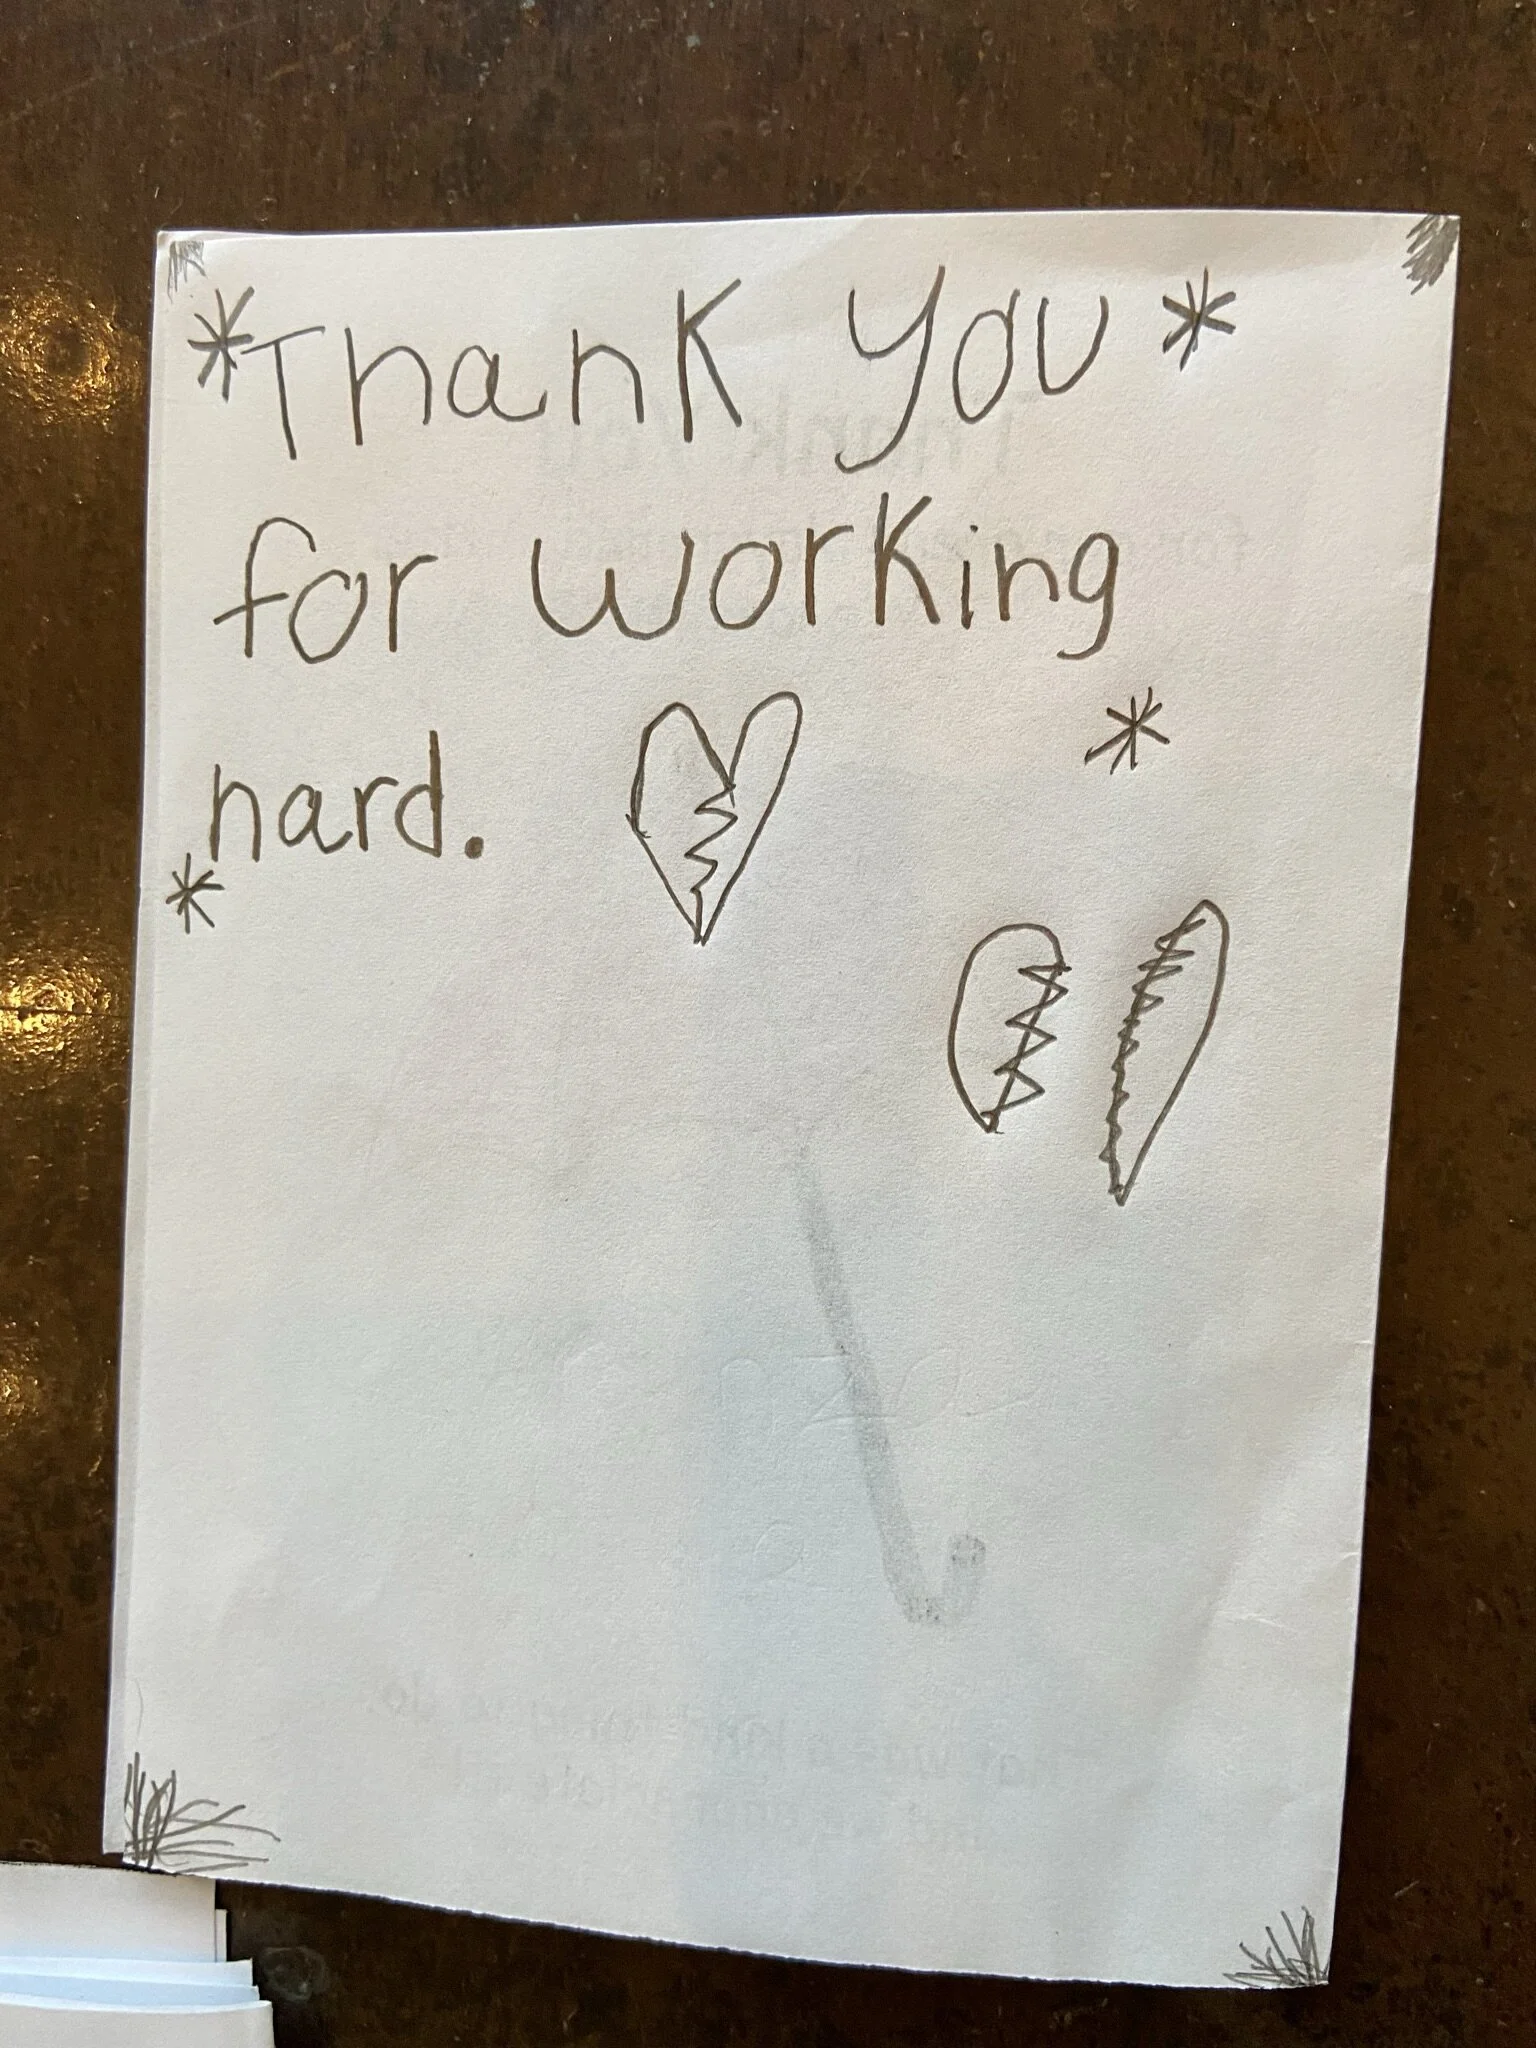 *Thank you*
for working
hard.